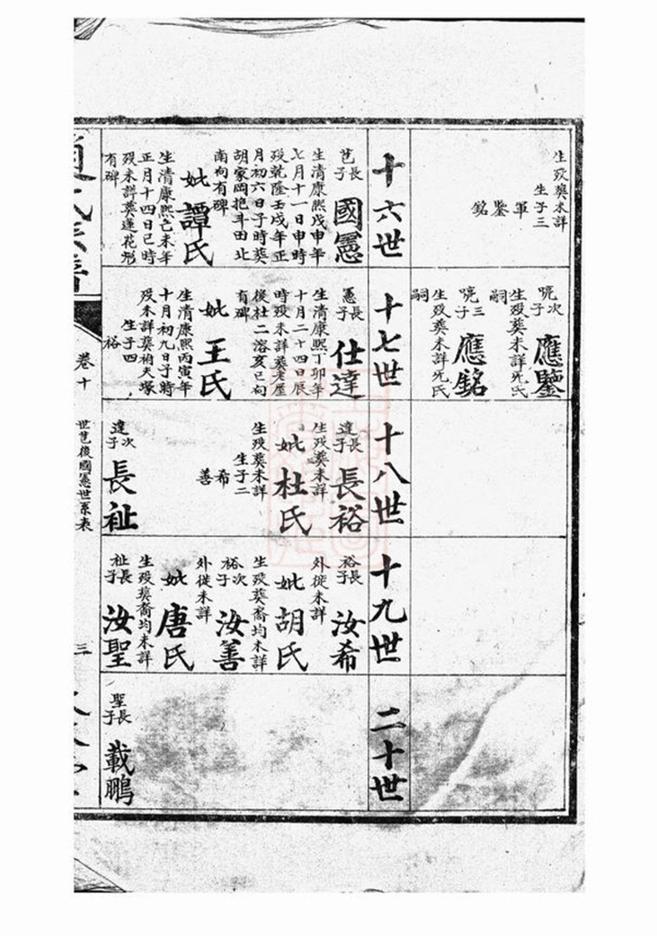 生歿葬未詳
生子三
軍
鑒
銘
次
嗣
生歿葬未詳兄氏
應鑒
三
嗣
生歿葬未詳兄氏
應銘
十六世
十七世
十八世
十九世
二十世
芑長子
國憲
生清康熙戊申年
七月十一日申時
歿乾隆壬戌年正
月初六日子時葬
胡家岡抱斗田北
南向有碑
妣譚氏
生清康熙己未年
正月十四日巳時
歿未詳葬蓮花形
有碑
憲長子
仕達
生清康熙丁卯年
十月二十四日辰
時歿未詳葬老屋
後杜二溶亥巳向
有碑
妣王氏
生清康熙丙寅年
十月初九日子時
歿未詳葬衕天塚
生子四
裕
達長子
長裕
生歿葬未詳
妣杜氏
生歿葬未詳
生子二
希
善
達次子
長祉
裕長子
汝希
外徙未詳
妣胡氏
生歿葬裔均未詳
裕次子
汝善
外徙未詳
妣唐氏
生歿葬裔均未詳
祉長子
汝聖
聖長子
載鵬
卷十
世芑後國憲世系表
三